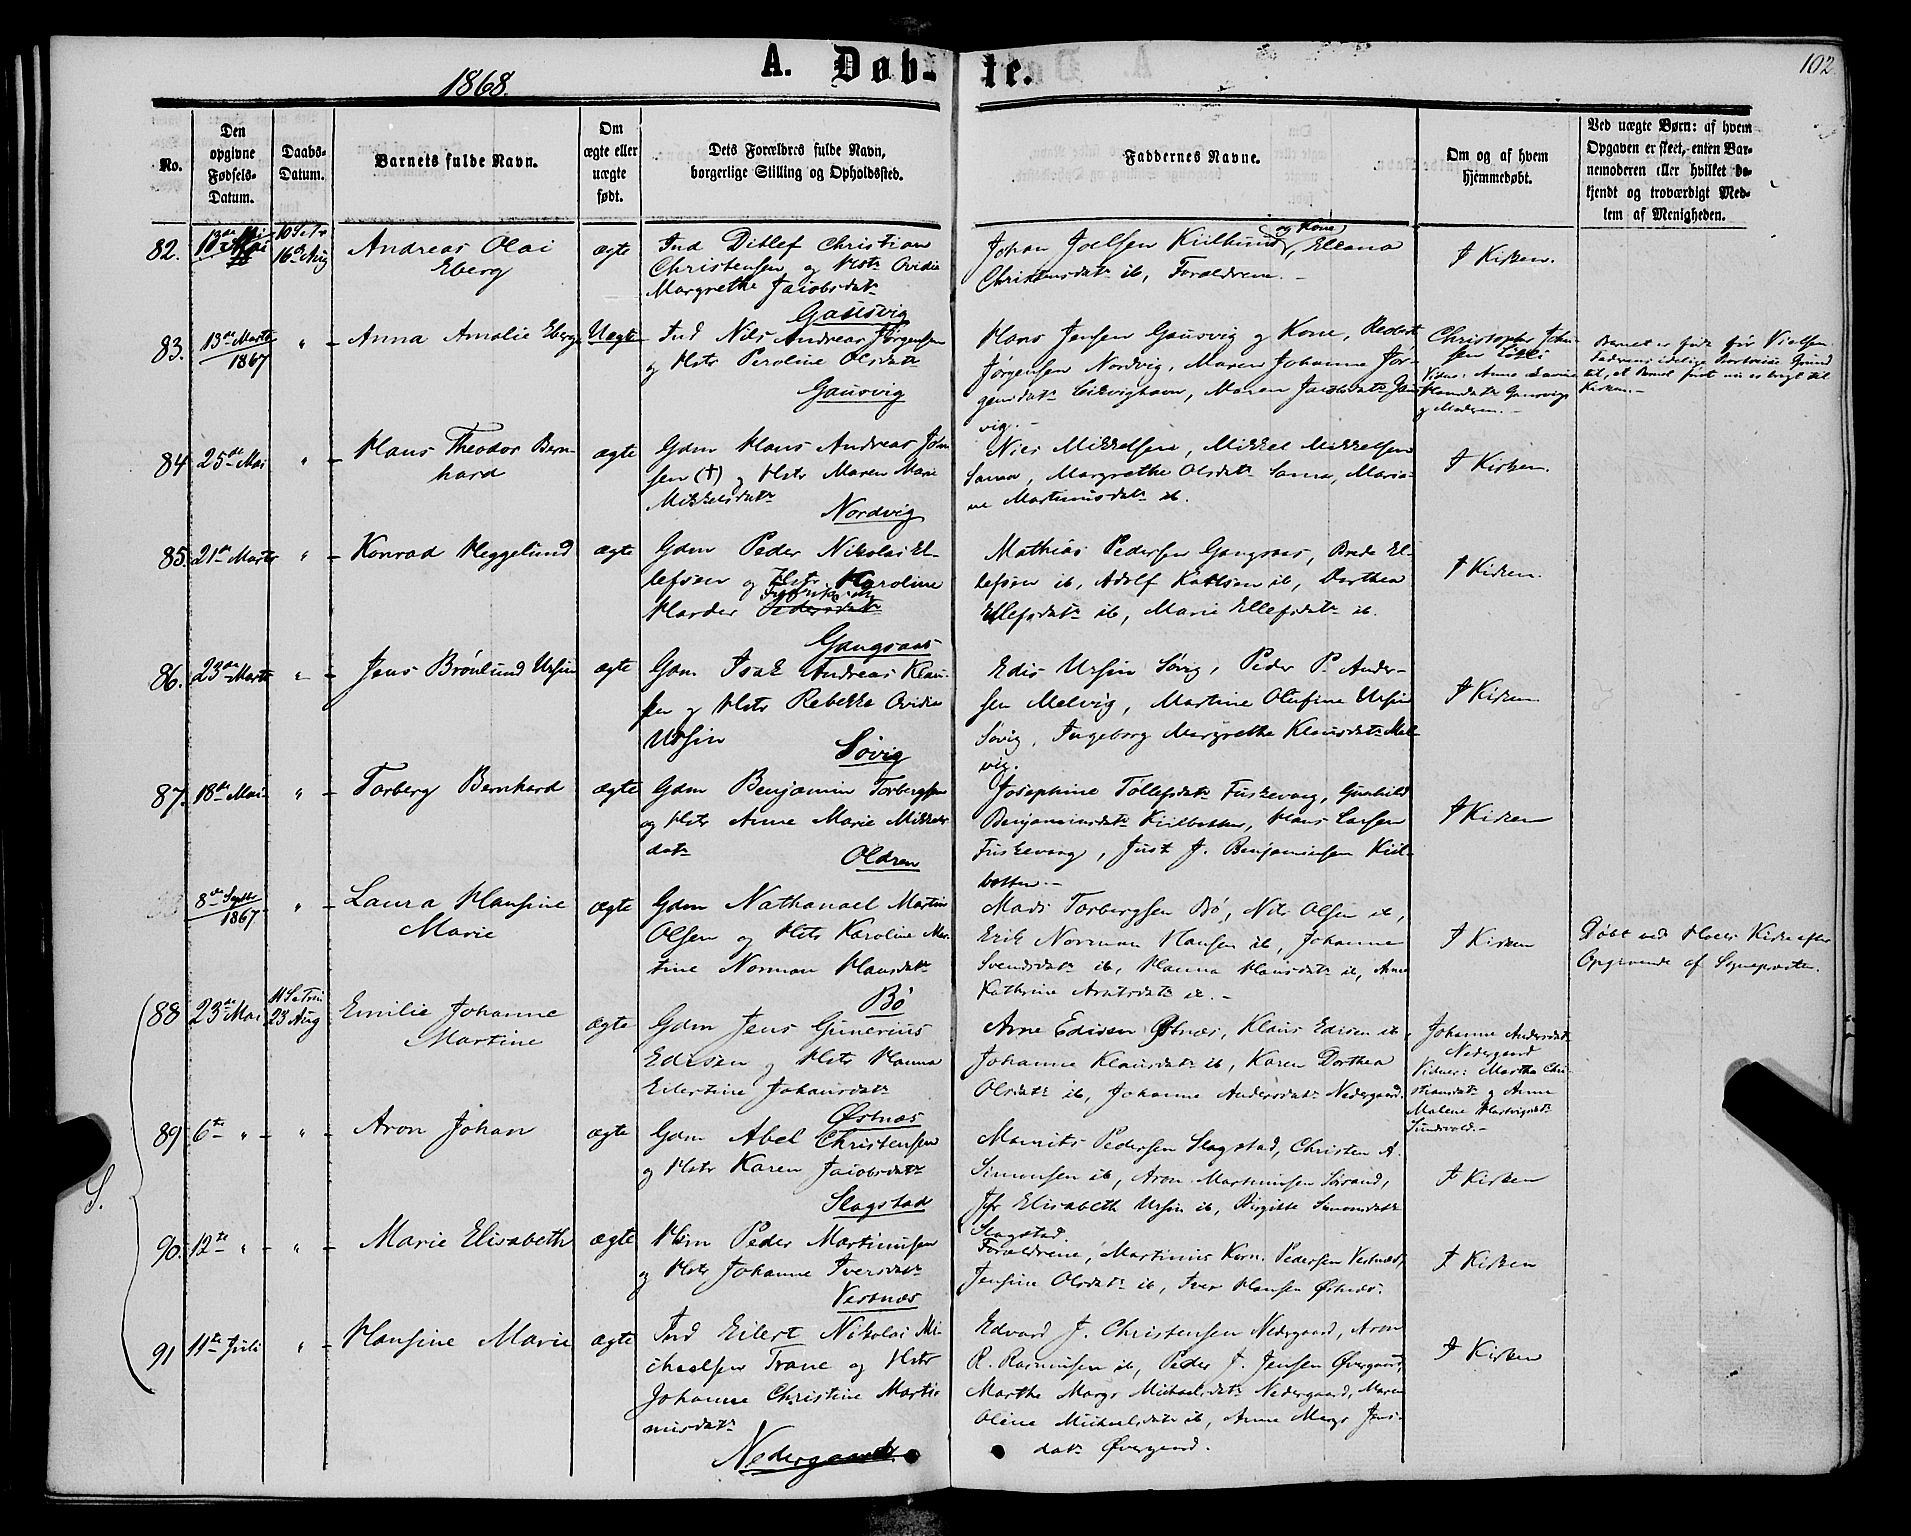 102
1868.
A. Døb-te.
No.
Den opgivne Fødsels-Datum.
Daabs-Datum.
Barnets fulde Navn.
Om ægte eller uægte født.
Dets Forældres fulde Navn,
borgerlige Stilling og Opholdssted.
Faddernes Navne.
Om og af hvem
hjemmedøbt.
Ved uægte Børn: af hvem
Opgaven er skeet, enten Bar-
nemoderen eller hvilket be-
kjendt og troværdigt Med-
lem af Menigheden.
82.
16 Aug
Andreas Olai
Eberg
ægte
Ind Ditlef Christian
Christensen og Hstr Ovidia
Margrethe Jacobsdatr
Gausvig
Johan Joelsen Kiilbund og Kone, Eleana
Christensdatr ib, Forældrene.
I Kirken.
83.
13de Marts
1867
" -
Anna Amalie Eberg
Uægte
Ind Nils Andreas Jørgensen
og Hstr Peroline Olsdatr
Gausvig
Hans Jensen Gausvig og Kone,
Jørgensen Nordvig, Maren Johanne Jør-
gensdatr Maren Jacobsdatr Gaus-
vig. -
Christopher Johan-
sen
Vidne: Anne
Hansdatr Gausvig
og Moderen. -
Barnet er født før Vielsen.
til, at Barnet først nu er bragt til
Kirken. -
84
25de Mai
" -
Hans Theodor Bern-
hard
ægte
Gdm Hans Andreas John-
sen (†) og Hstr Maren Marie
Mikkelsdatr
Nordvig
Niels Mikkelsen, Mikkel Mikkelsen
Sama, Margrethe Olsdatr Sama, Maria-
ne Martinusdatr ib.
I Kirken.
85.
21de Marts
" -
Konrad Heggelund
ægte
Gdm Peder Nikolai El-
lefsen og Hstr Karoline
Harder
Gangsaas
Mathias Pedersen Gangsaas, Brede El-
lefsen ib, Adolf Karlsen ib, Dorthea
Ellefsdatr ib, Marie Ellefsdatr ib.
I Kirken.
86.
23de Marts
" -
Jens Brönlund Ursin
ægte
Gdm Isak Andreas Klau-
sen og Hstr Rebekka Ovidia
Ursin
Søvig
Edis Ursin Søvig, Peder P. Ander-
sen Melvig, Martine Olufine Ursin
Søvig, Ingeborg Margrethe Klausdatr Mel-
vig.
I Kirken
87.
18de Mai
" -
Torberg Bernhard
ægte
Gdm Benjamin Torbergsen
og Hstr Anne Marie Mikkels-
datr
Oldren
Josephine Tollefsdatr Fuskevaag, Gunhild
Benjaminsdatr Kiilbotten, Hans Larsen
Fuskevaag, Just J. Benjaminsen Kiil-
botten. -
I Kirken
8de Septbr
1867
" -
Laura Hansine
Marie
ægte
Gdm Nathanael Martin
Olsen og Hstr Karoline Mar-
tine Norman Hansdatr
Bö
Mads Torbergsen Bö, Nils Olsen ib,
Erik Norman Hansen ib, Johanne
Svendsdatr ib, Hanna Hansdatr ib, Anne
Kathrine Arntsdatr ib. -
I Kirken
Døbt ved Hols Kirke efter
Opgivende af Sognepræsten.
88
23de Mai
11 S e Trin
23 Aug
Emilie Johanne
Martine
ægte
Gdm Jens Gunerius
Edisen og Hstr Hanna
Eilertine Johansdatr
Østnæs
Arne Edisen Østnæs, Klaus Edisen ib,
Johanne Klausdatr ib, Karen Dorthea
Olsdatr ib, Johanne Andersdatr Nedergaard.
Johanne Andersdatr
Nedergaard
Vidner: Martha Chri-
stiansdatr og Anne
Malene Hartvigsdatr
Sundsvold. -
89
6te " -
" -
Aron Johan
ægte
Gdm Abel Christensen
og Hstr Karen Jacobsdatr
Slagstad
Mauritz Pedersen Slagstad, Christen A.
Simonsen ib, Aron Martinusen Sørsand,
Jfr Elisabeth Ursin ib, Birgitte Simonsdatr
Slagstad.
I Kirken
S.
90.
12te " -
" -
Marie Elisabeth
ægte
Hsm Peder Martinusen
og Hstr Johanne Iversdatr
Vestnæs
Forældrene, Martinus Korn. Pedersen Vestnæs,
Jensine Olsdatr ib, Iver Hansen Østnæs.
I Kirken
91
11te Juli
" -
Hansine Marie
ægte
Ind Eilert Nikolai Mi-
chaelsen Trane og Hstr
Johanne Christine Marti-
nusdatr
Nedergaard
Edvard J. Christensen Nedergaard, Aron
R. Rasmussen ib, Peder J. Jensen Øvergaard,
Marthe Margr Michaelsdatr Nedergaard, Maren
Oline Michaelsdatr ib, Anne Margr Jens-
datr Øvergaard.
I Kirken